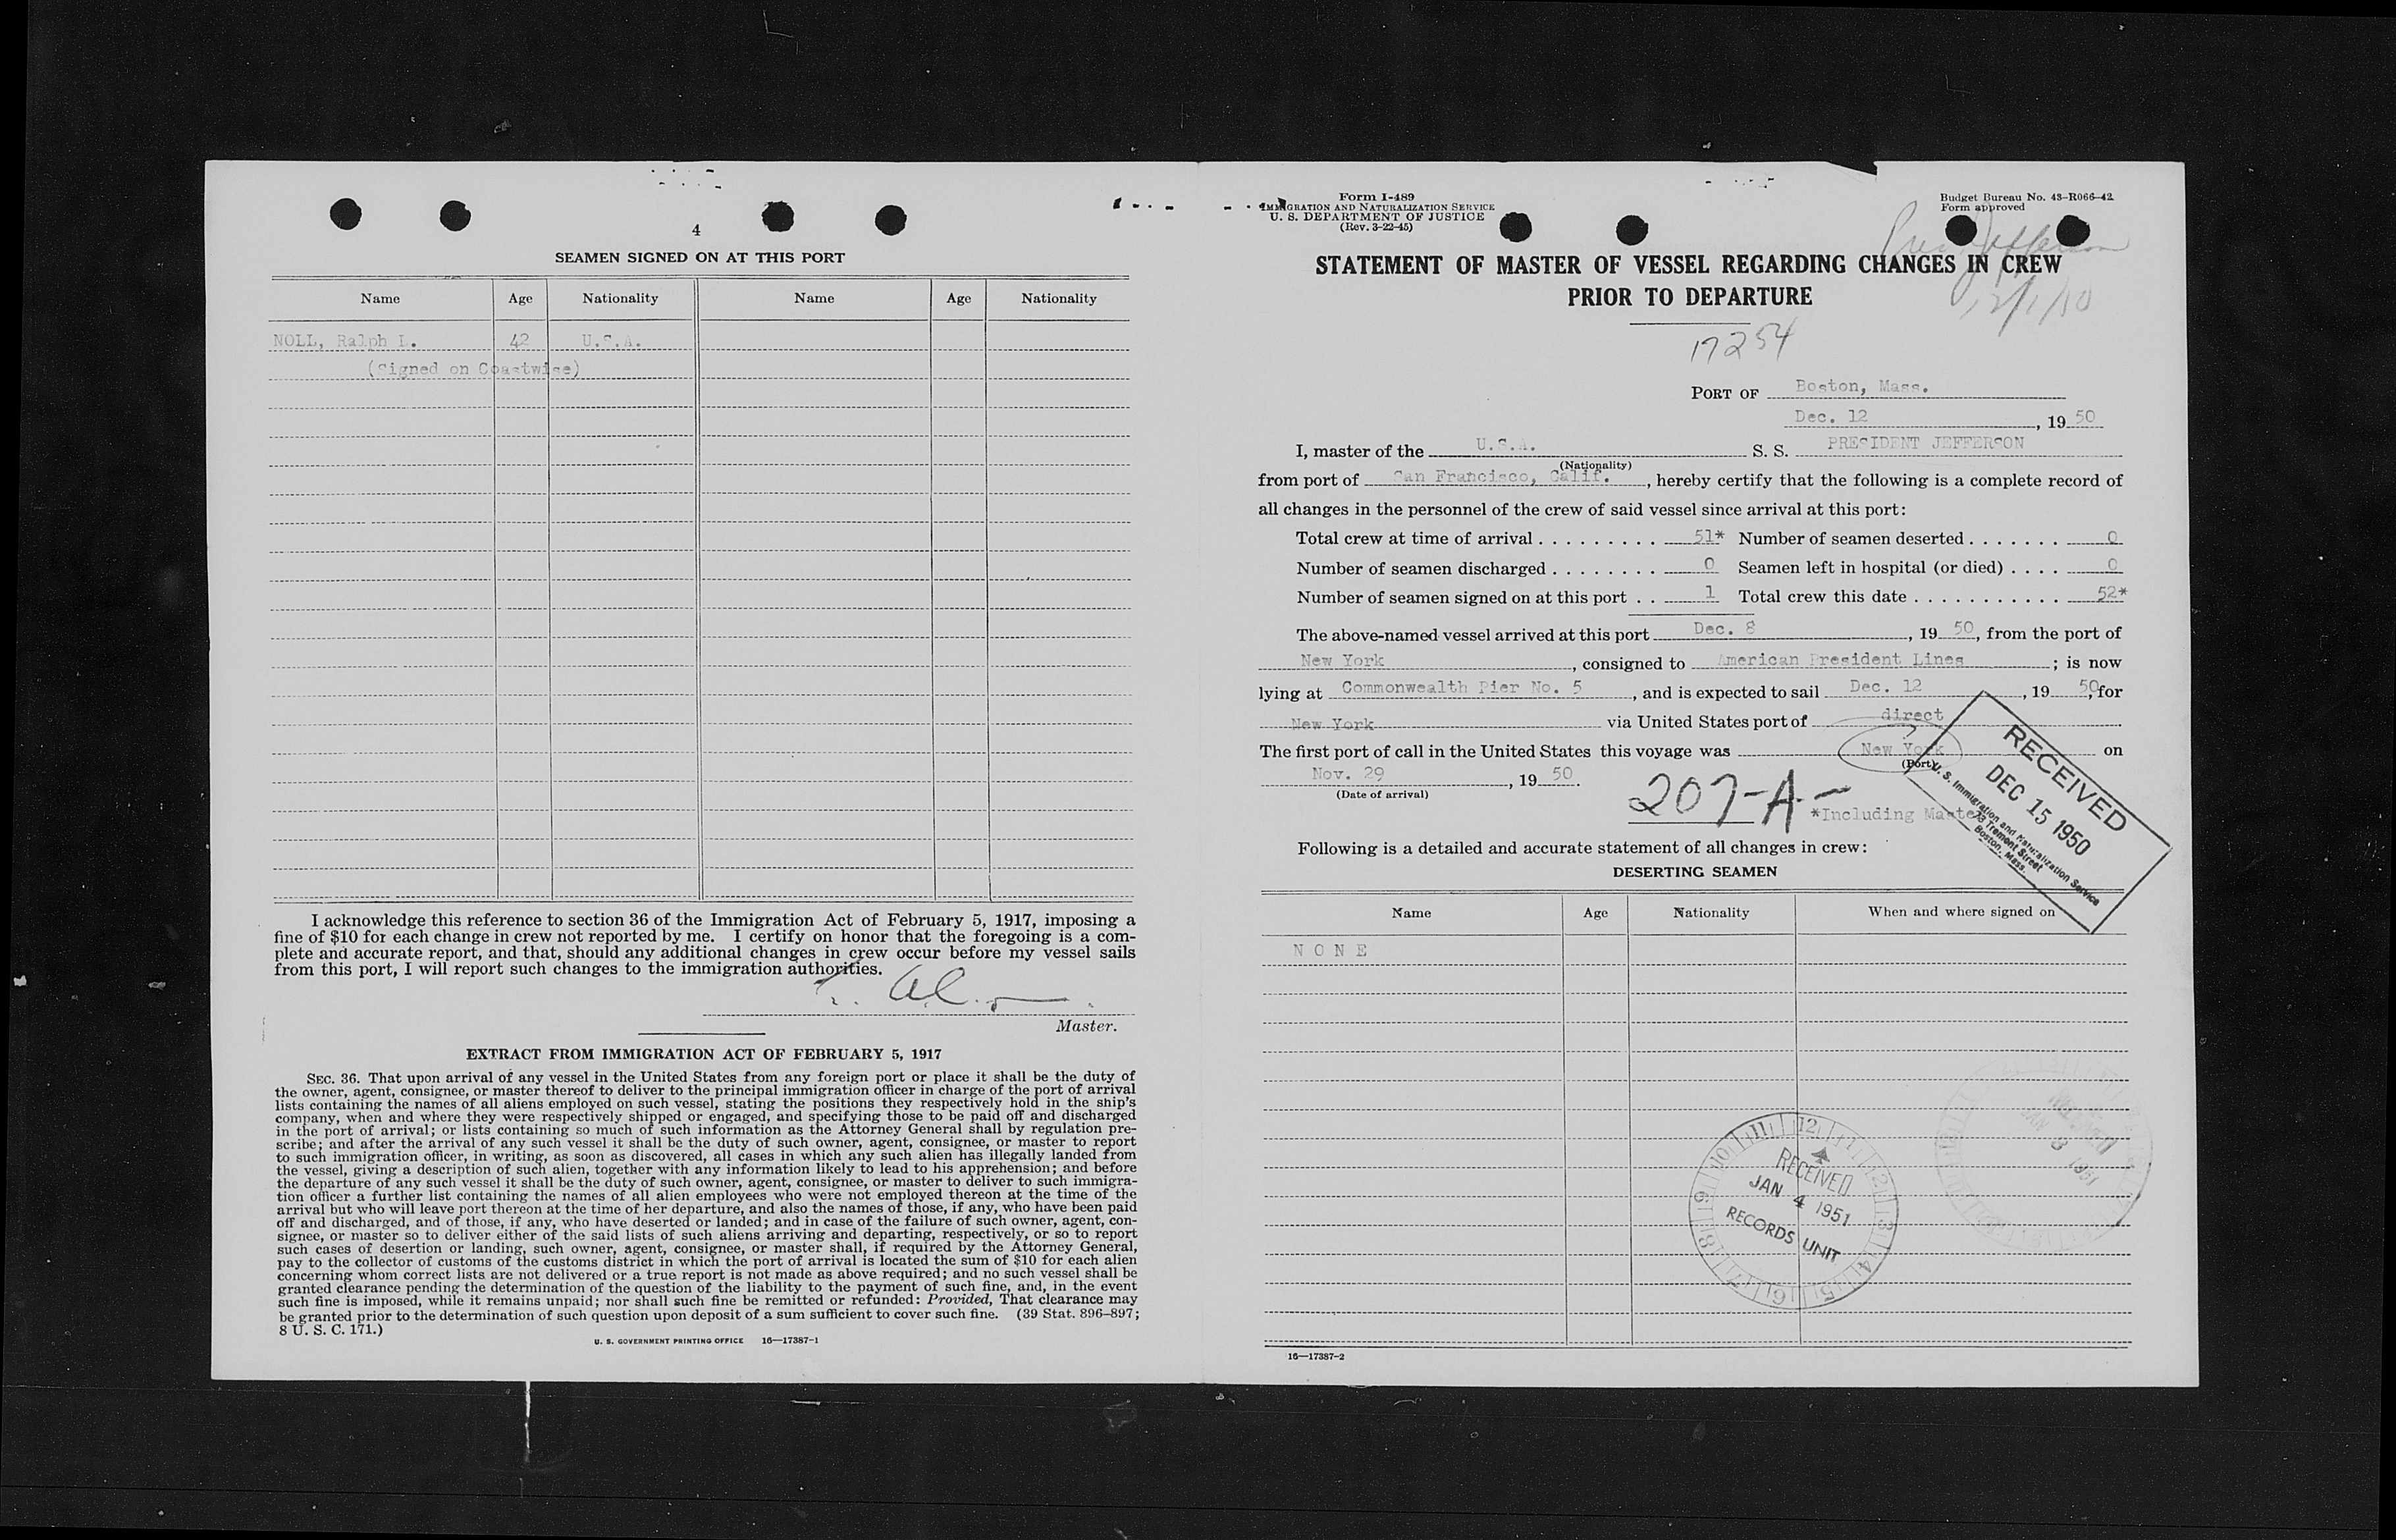 4
SEAMEN SIGNED ON AT THIS PORT
Name Age Nationality Name Age Nationality
NOLL, Ralph L. 42 U.S.A.
(Signed on Coastwise)
I acknowledge this reference to section 36 of the Immigration Act of February 5, 1917, imposing a
fine of $10 for each change in crew not reported by me. I certify on honor that the foregoing is a com-
plete and accurate report, and that, should any additional changes in crew occur before my vessel sails
from this port, I will report such changes to the immigration authorities.
Master.
EXTRACT FROM IMMIGRATION ACT OF FEBRUARY 5, 1917
SEC. 36. That upon arrival of any vessel in the United States from any foreign port or place it shall be the duty of
the owner, agent, consignee, or master thereof to deliver to the principal immigration officer in charge of the port of arrival
lists containing the names of all aliens employed on such vessel, stating the positions they respectively hold in the ship's
company, when and where they were respectively shipped or engaged, and specifying those to be paid off and discharged
in the port of arrival; or lists containing so much of such information as the Attorney General shall by regulation pre-
scribe; and after the arrival of any such vessel it shall be the duty of such owner, agent, consignee, or master to report
to such immigration officer, in writing, as soon as discovered, all cases in which any such alien has illegally landed from
the vessel, giving a description of such alien, together with any information likely to lead to his apprehension; and before
the departure of any such vessel it shall be the duty of such owner, agent, consignee, or master to deliver to such immigra-
tion officer a further list containing the names of all alien employees who were not employed thereon at the time of the
arrival but who will leave port thereon at the time of her departure, and also the names of those, if any, who have been paid
off and discharged, and of those, if any, who have deserted or landed; and in case of the failure of such owner, agent, con-
signee, or master so to deliver either of the said lists of such aliens arriving and departing, respectively, or so to report
such cases of desertion or landing, such owner, agent, consignee, or master shall, if required by the Attorney General,
pay to the collector of customs of the customs district in which the port of arrival is located the sum of $10 for each alien
concerning whom correct lists are not delivered or a true report is not made as above required; and no such vessel shall be
granted clearance pending the determination of the question of the liability to the payment of such fine, and, in the event
such fine is imposed, while it remains unpaid; nor shall such fine be remitted or refunded: Provided, That clearance may
be granted prior to the determination of such question upon deposit of a sum sufficient to cover such fine. (39 Stat. 896–897;
8 U. S. C. 171.)
U. S. GOVERNMENT PRINTING OFFICE 16—17387-1
Form I-489
IMMIGRATION AND NATURALIZATION SERVICE
U. S. DEPARTMENT OF JUSTICE
(Rev. 3-22-45)
Budget Bureau No. 43-R066-42
Form approved
Pres Jefferson
12/1/50
STATEMENT OF MASTER OF VESSEL REGARDING CHANGES IN CREW
PRIOR TO DEPARTURE
17254
PORT OF Boston, Mass.
Dec. 12, 19 50
I, master of the U.S.A. S. S. PRESIDENT JEFFERSON
(Nationality)
from port of San Francisco, Calif., hereby certify that the following is a complete record of
all changes in the personnel of the crew of said vessel since arrival at this port:
Total crew at time of arrival . . . . . . . . . 51* Number of seamen deserted . . . . . . . 0
Number of seamen discharged . . . . . . . . 0 Seamen left in hospital (or died) . . . . 0
Number of seamen signed on at this port . . 1 Total crew this date . . . . . . . . . . . . 52*
The above-named vessel arrived at this port Dec. 8, 19 50, from the port of
New York, consigned to American President Lines; is now
lying at Commonwealth Pier No. 5, and is expected to sail Dec. 12, 19 50, for
New York via United States port of direct
?
The first port of call in the United States this voyage was New York on
(Port)
Nov. 29, 19 50.
(Date of arrival)
207-A-
*Including Master
RECEIVED
DEC 15 1950
U. S. Immigration and Naturalization Service
73 Tremont Street
Boston, Mass.
Following is a detailed and accurate statement of all changes in crew:
DESERTING SEAMEN
Name Age Nationality When and where signed on
N O N E
11 12 1 2 3 4 5 6 7 8 9 10
RECEIVED
JAN 4 1951
RECORDS UNIT
JAN 3 1951
16—17387-2